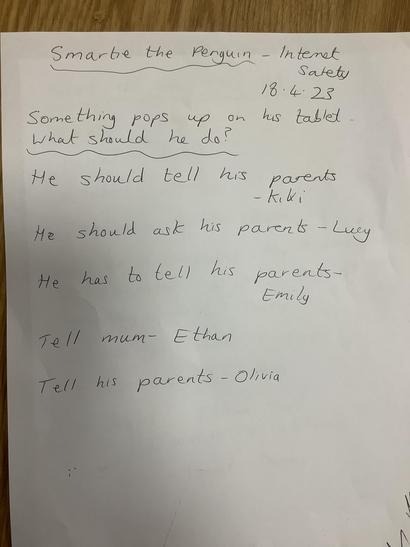 Smartie the Penguin - Internet
Safety
18.4.23
Something pops up on his tablet.
What should he do?
He should tell his parents
- Kiki
He should ask his parents - Lucy
He has to tell his parents-
Emily
Tell mum- Ethan
Tell his parents - Olivia